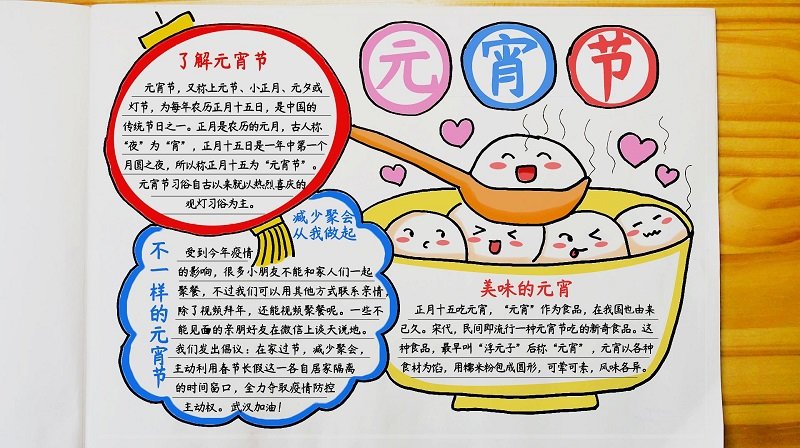 元宵节
了解元宵节
元宵节，又称上元节、小正月、元夕或
灯节，为每年农历正月十五日，是中国的
传统节日之一。正月是农历的元月，古人称
“夜”为“宵”，正月十五日是一年中第一个
月圆之夜，所以称正月十五为“元宵节”。
元宵节习俗自古以来就以热烈喜庆的
观灯习俗为主。
减少聚会
从我做起
不一样的元宵节
受到今年疫情
的影响，很多小朋友不能和家人们一起
聚餐，不过我们可以用其他方式联系亲情，
除了视频拜年，还能视频聚餐呢。一些不
能见面的亲朋好友在微信上谈天说地。
我们发出倡议：在家过节，减少聚会，
主动利用春节长假这一各自居家隔离
的时间窗口，全力夺取疫情防控
主动权。武汉加油！
美味的元宵
正月十五吃元宵，“元宵”作为食品，在我国也由来
已久。宋代，民间即流行一种元宵节吃的新奇食品。这
种食品，最早叫“浮元子”后称“元宵”，元宵以各种
食材为馅，用糯米粉包成圆形，可荤可素，风味各异。